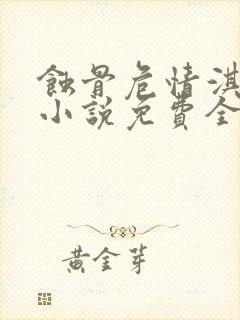 蝕骨危情淇
小説免費全
黃金芽